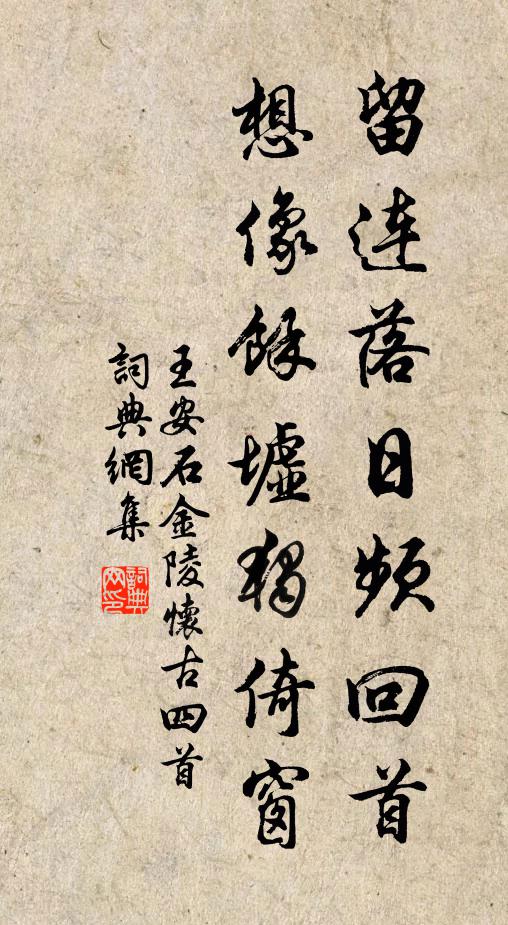 留連落日頻回首
想像餘墟獨倚窗
王安石金陵懷古四首
詞典網集
詞典网印